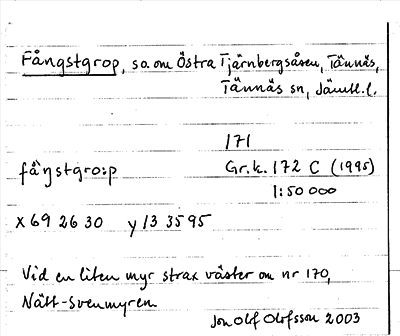 Fångstgrop, so. om Östra Tjärnbergsåsen, Tännäs,
Tännäs sn, Jämtl. l.
171
fåŋstgro:p Gr.k. 172 C (1995)
1:50 000
x 69 26 30 y 13 35 95
Vid en liten myr strax väster om nr 170,
Nätt-Svenmyren
Jon Olof Olofsson 2003